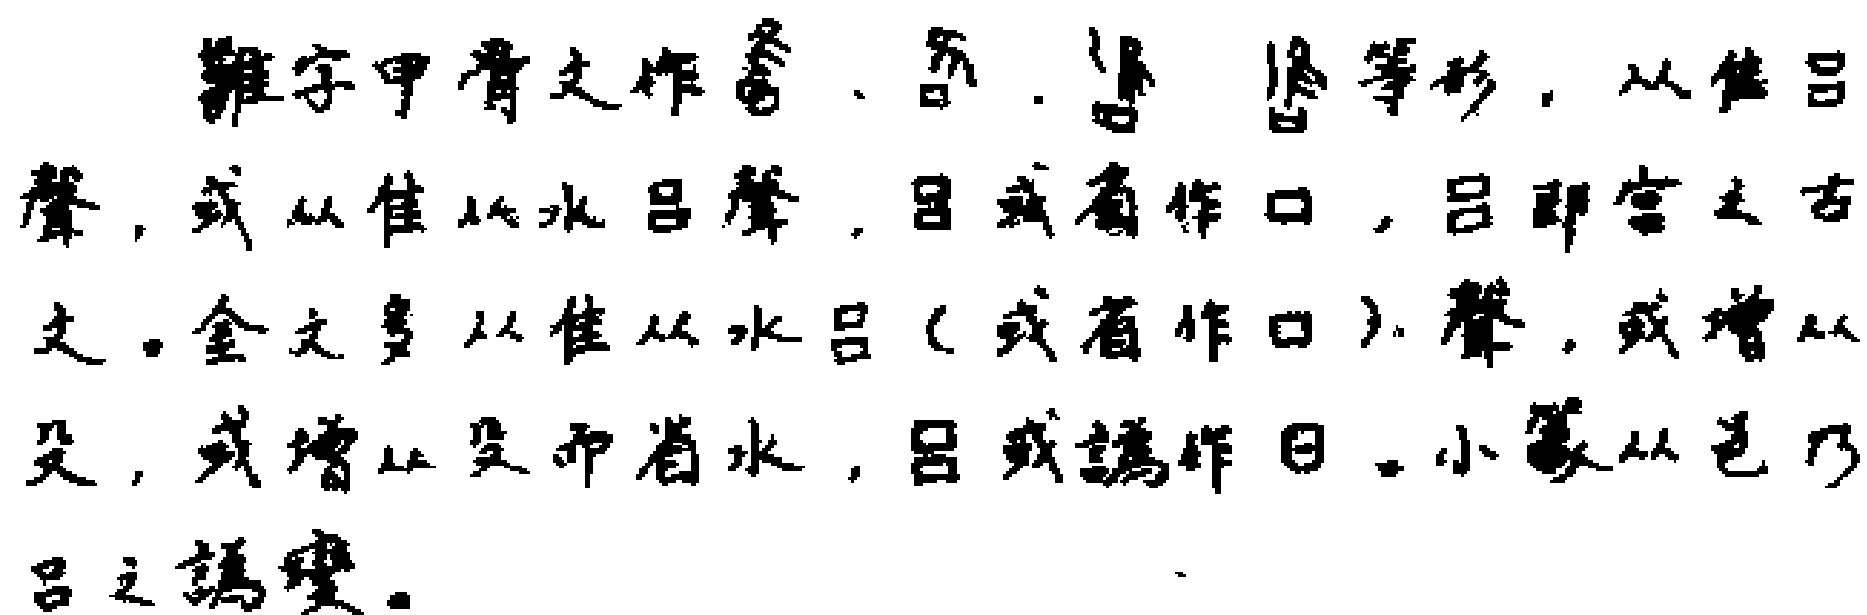 雝字甲骨文作、、等形，从隹吕
聲，或从隹从水吕聲，吕或省作口，吕即宫之古
文。金文多从隹从水吕（或省作口）聲，或增从
殳，或增从殳而省水，吕或譌作日。小篆从邑乃
吕之譌變。